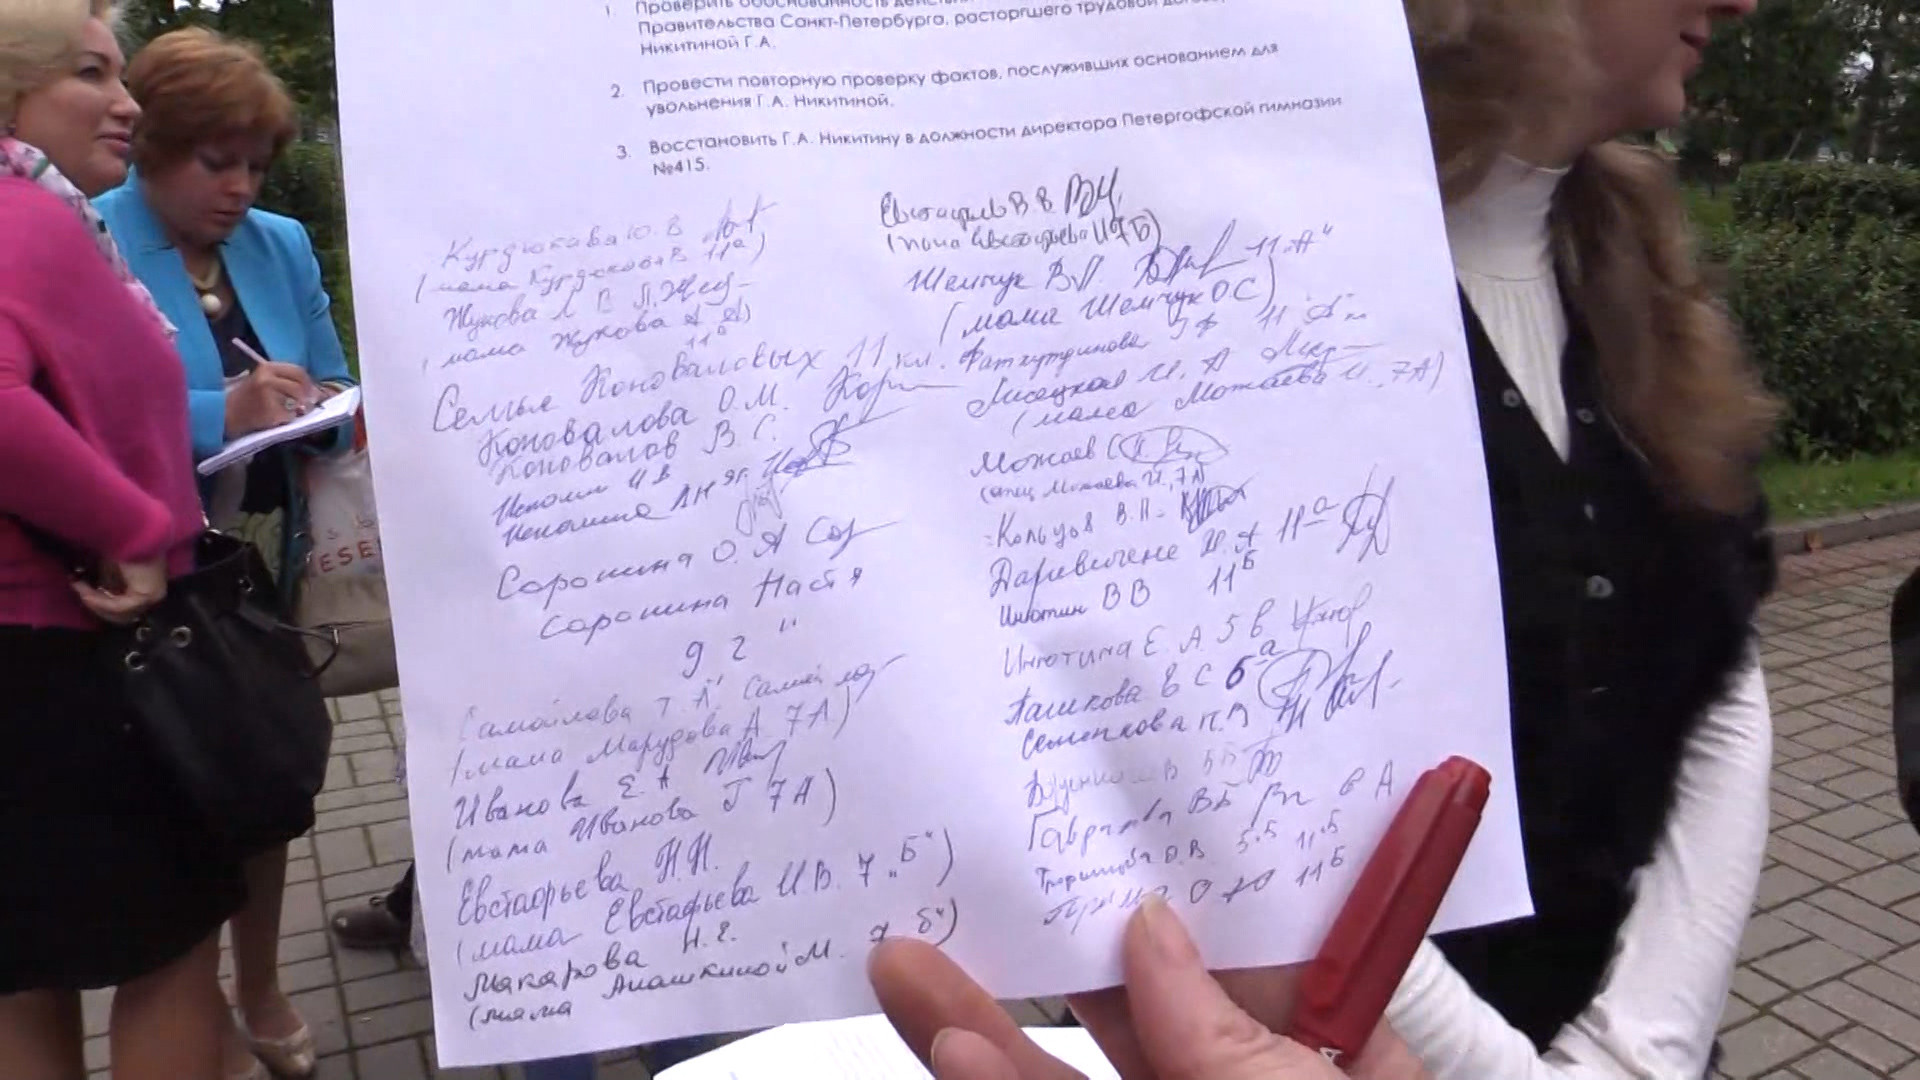 1. Проверить обоснованность
Правительства Санкт-Петербурга, расторгшего трудовой
Никитиной Г.А.
2. Провести повторную проверку фактов, послуживших основанием для
увольнения Г.А. Никитиной.
3. Восстановить Г.А. Никитину в должности директора Петергофской гимназии
№415.
Курдюкова Ю. В
(мама Курдюкова В 11а)
Жукова Л В Л.Жу
(мама Жукова А А)
11а
Семья Коноваловых 11 кл.
Коновалова О.М.
Коновалов В. С.
Сорокина О. А
Сорокина Настя
9 г"
Самойлова Т. А.
(мама Марудова А. 7А)
Иванова Е. А
(мама Иванова Г 7А)
Евстафьева Н.Н.
(мама Евстафьева И.В. 7 „Б")
Макарова Н. Е.
(мама Анашкиной М. 7 б")
Евстафьев В В
(папа Евстафьева И 7Б)
Шемчук В.Л. 11 „А"
(мама Шемчук О С)
Фатхутдинова 11 „А"
Лисецкая И. А
(мама Можаева И., 7А)
Можаев
(отец Можаева И., 7А)
Кольцов В.П.
Даревичене И. А 11а
Инютин В В 11Б
Инютина Е. А. 5 в
Пашкова В С 6а
Семенкова Н. В
5Б
В Б 6 А
О.В. 5.Б 11.Б
О Ю 11Б
ESE